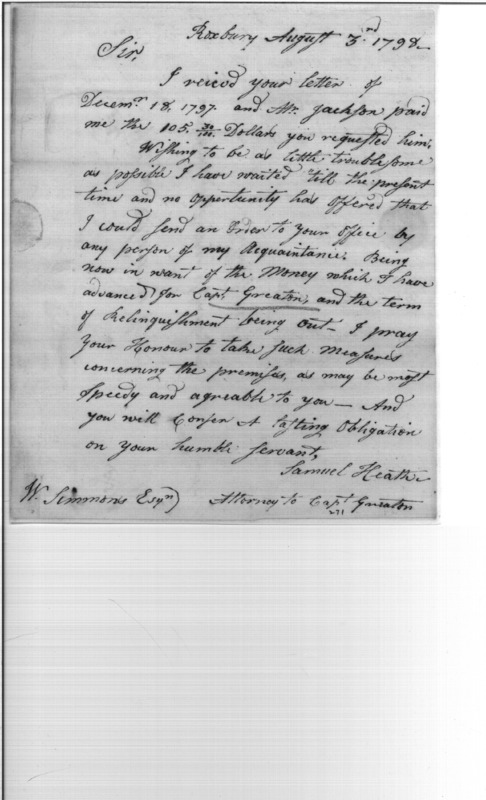 Roxbury August 3rd 1798.
Sir,
I reicvd your letter of
Decemr 18, 1797. and Mr. Jackson paid
me the 105. Dollars you requested him.
Wishing to be as little troublesome
as possible I have waited till the present
time and no opportunity has offered that
I could send an Order to your office by
any person of my Acquaintance. Being
now in want of the Money which I have
advanced for Capt. Greaton, and the term
of Relinquishment being out – I pray
your Honour to take such measures
concerning the premises, as may be most
speedy and agreable to you – And
you will Confer A lasting Obligation
on your humble servant,
Samuel Heath
W. Simmons Esqr) Attorney to Capt Greaton